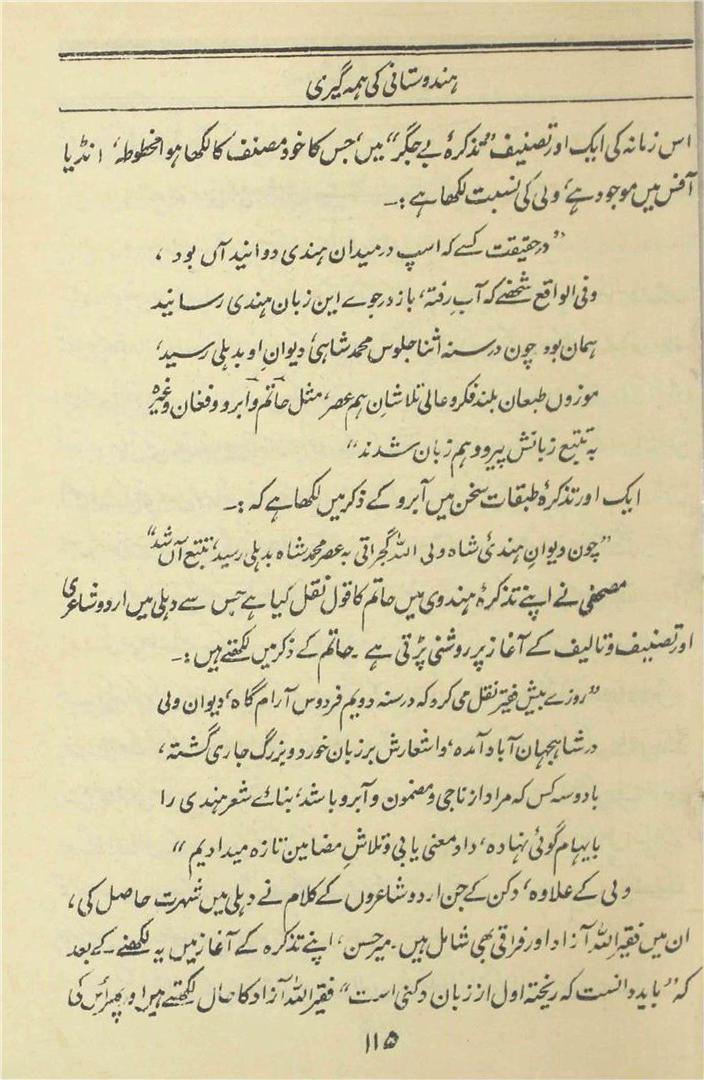 ہندوستانی کی ہمہ گیری
اس زمانہ کی ایک اور تصنیف "تذکرۂ بے جگر" میں، جس کا خود مصنف کا لکھا ہوا مخطوطہ، انڈیا
آفس میں موجود ہے، ولی کی نسبت لکھا ہے :۔
"درحقیقت کسے کہ اسپ در میدان ہندی دوانید آں بود،
وفی الواقع شخصے کہ آب رفتہ، باز در جوے این زبان ہندی رسانید
ہمان بود چون در سنہ اثنا جلوس محمد شاہی، دیوان او بدہلی رسید،
موزوں طبعان بلند فکر و عالی تلاشان ہم عصر، مثل حاتم و آبرو و فغان وغیرہ
بہ تتبع زبانش پیرو و ہم زبان شدند"
ایک اور تذکرۂ طبقات سخن میں آبرو کے ذکر میں لکھا ہے کہ :۔
"چون دیوان ہندیٔ شاہ ولی اللہ گجراتی بہ عصر محمد شاہ بدہلی رسید، تتبع آں شد"
مصحفی نے اپنے تذکرۂ ہندوی میں حاتم کا قول نقل کیا ہے جس سے دہلی میں اردو شاعری
اور تصنیف و تالیف کے آغاز پر روشنی پڑتی ہے ۔ حاتم کے ذکر میں لکھتے ہیں :۔
"روزے پیش فقیر نقل می کرد کہ در سنہ دویم فردوس آرام گاہ، دیوان ولی
در شاہجہان آباد آمدہ، و اشعارش بر زبان خورد و بزرگ جاری گشتہ،
با دو سہ کس کہ مراد از ناجی و مضمون و آبرو باشد، بنائے شعر ہندی را
بایہام گوئی نہادہ، داد معنی یابی و تلاش مضامین تازہ میدادیم"
ولی کے علاوہ، دکن کے جن اردو شاعروں کے کلام نے دہلی میں شہرت حاصل کی،
ان میں فقیر اللہ آزاد اور فراقی بھی شامل ہیں ۔ میر حسن، اپنے تذکرہ کے آغاز میں یہ لکھنے کے بعد
کہ "باید دانست کہ ریختہ اول از زبان دکنی است" فقیر اللہ آزاد کا حال لکھتے ہیں اور پھر اس کی
۱۱۵